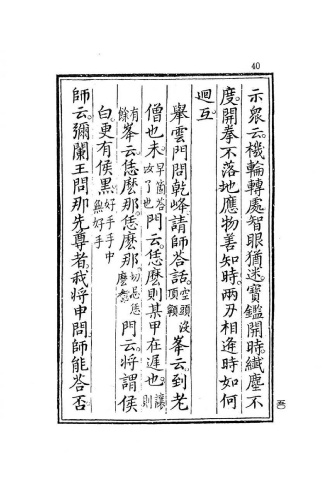 40
示衆云。機輪轉處智眼猶迷。寶鑑開時。纖塵不
度。開拳不落地。應物善知時。兩刃相逢時如何
迴互
舉雲門問乾峰。請師答話。空頭沒頂 峯云。到老
僧也未。早箇答汝了也 門云。恁麼則某甲在遲也。讓則
有餘 峯云。恁麼那恁麼那。切忌恁麼 門云。將謂侯
白更有侯黑。好手手中無好手
師云。彌蘭王問那先尊者。我將申問。師能答否。